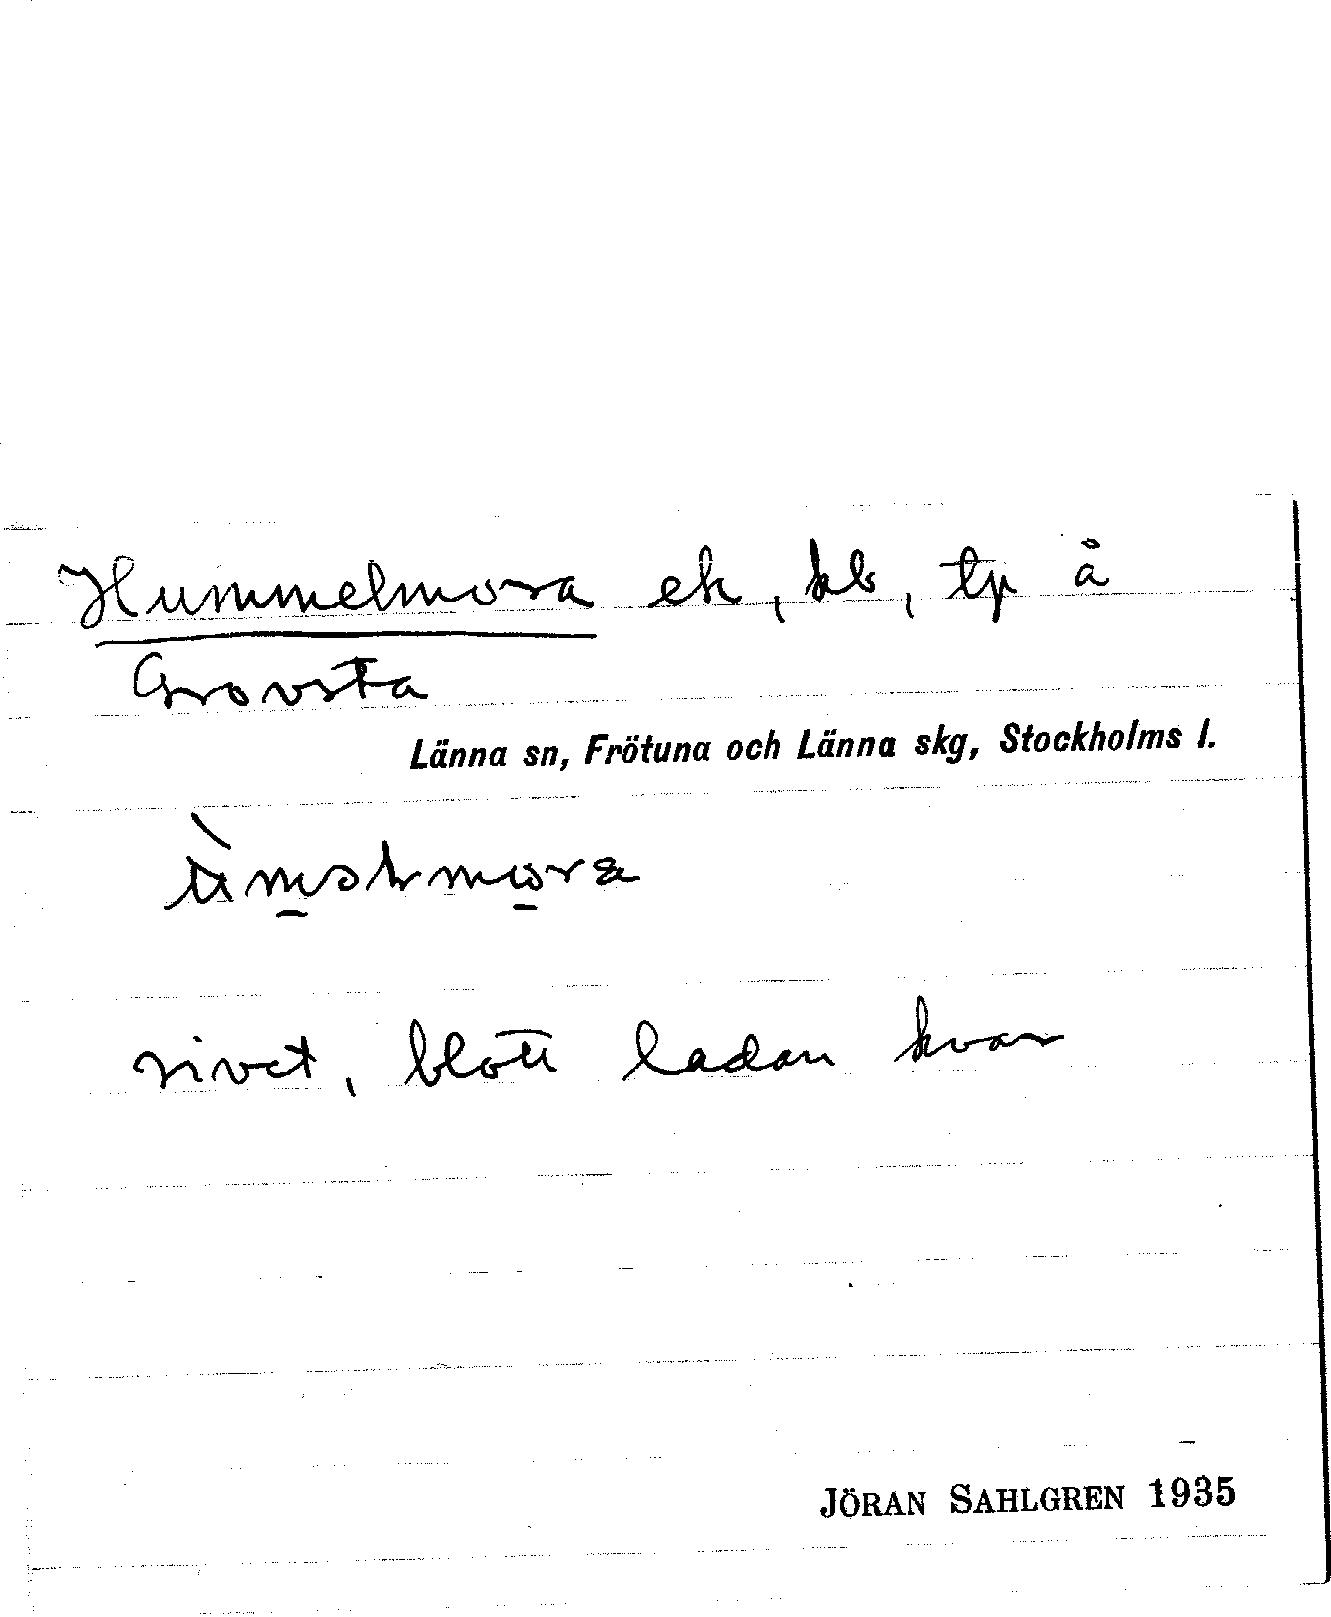 Hummelmora ek, kb, tp å
Grovsta
Länna sn, Frötuna och Länna skg, Stockholms l.
rivet, blott ladan kvar
JÖRAN SAHLGREN 1935